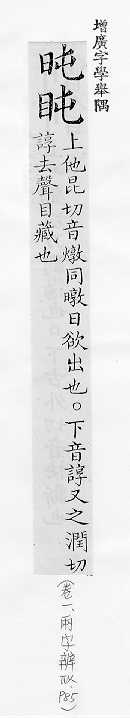 增廣字學舉隅
旽盹
上他昆切音燉同暾日欲出也。下音諄又之潤切
諄去聲目藏也
(卷一、兩字辨似、P85)